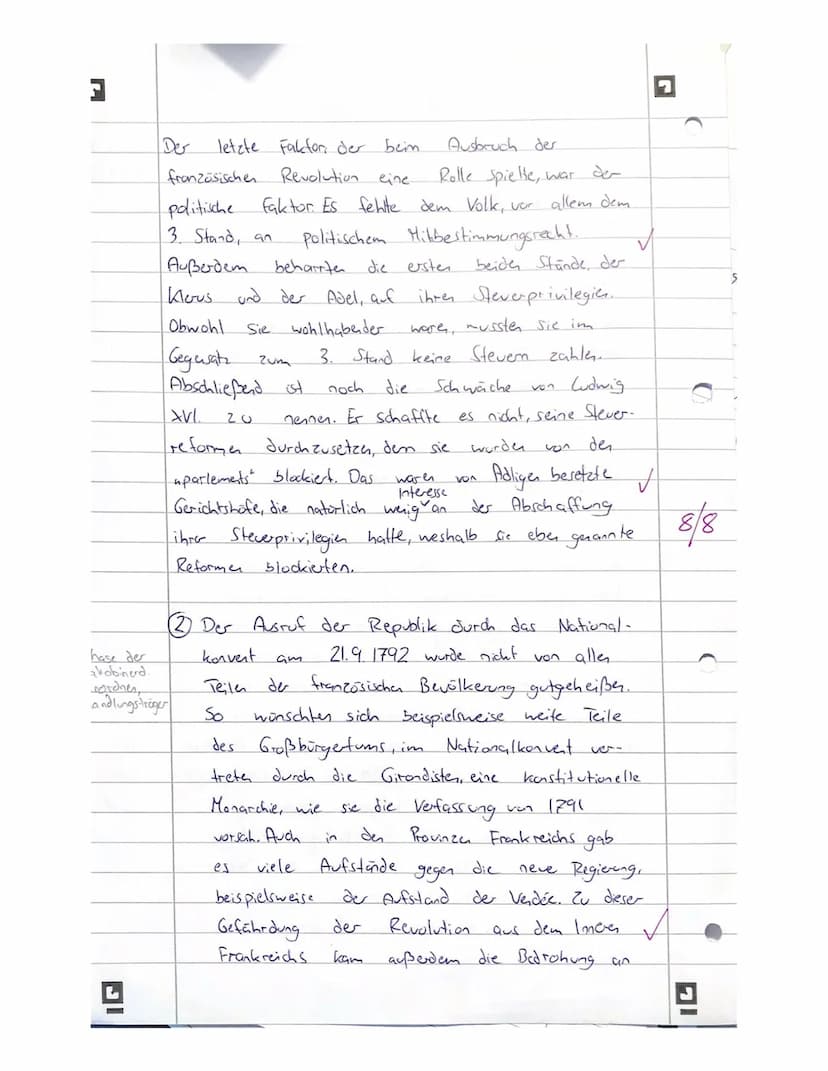 Der letzte Faktor, der beim Ausbruch der
französischen Revolution eine Rolle spielte, war der
politische Faktor. Es fehlte dem Volk, vor allem dem
3. Stand, an politischem Mitbestimmungsrecht.
Außerdem beharrten die ersten beiden Stände, der
Klerus und der Adel, auf ihren Steuerprivilegien.
Obwohl Sie wohlhabender waren, mussten sie im
Gegensatz zum 3. Stand keine Steuern zahlen.
Abschließend ist noch die Schwäche von Ludwig
XVI. zu nennen. Er schaffte es nicht, seine Steuer-
reformen durchzusetzen, denn sie wurden von den
"parlements" blockiert. Das waren von Adligen besetzte
Gerichtshöfe, die natürlich wenig Interesse an der Abschaffung
ihrer Steuerprivilegien hatte, weshalb sie eben genannte
Reformen blockierten.
8/8
② Der Ausruf der Republik durch das National-
konvent am 21.9.1792 wurde nicht von allen
Teilen der französischen Bevölkerung gutgeheißen.
So wünschten sich beispielsweise weite Teile
des Großbürgertums, im Nationalkonvent ver-
treten durch die Girondisten, eine konstitutionelle
Monarchie, wie sie die Verfassung von 1791
vorsah. Auch in den Provinzen Frankreichs gab
es viele Aufstände gegen die neue Regierung,
beispielsweise der Aufstand der Vendée. Zu dieser
Gefährdung der Revolution aus dem Inneren
Frankreichs kam außerdem die Bedrohung an
hase der
akobinerd.
andlungsträger